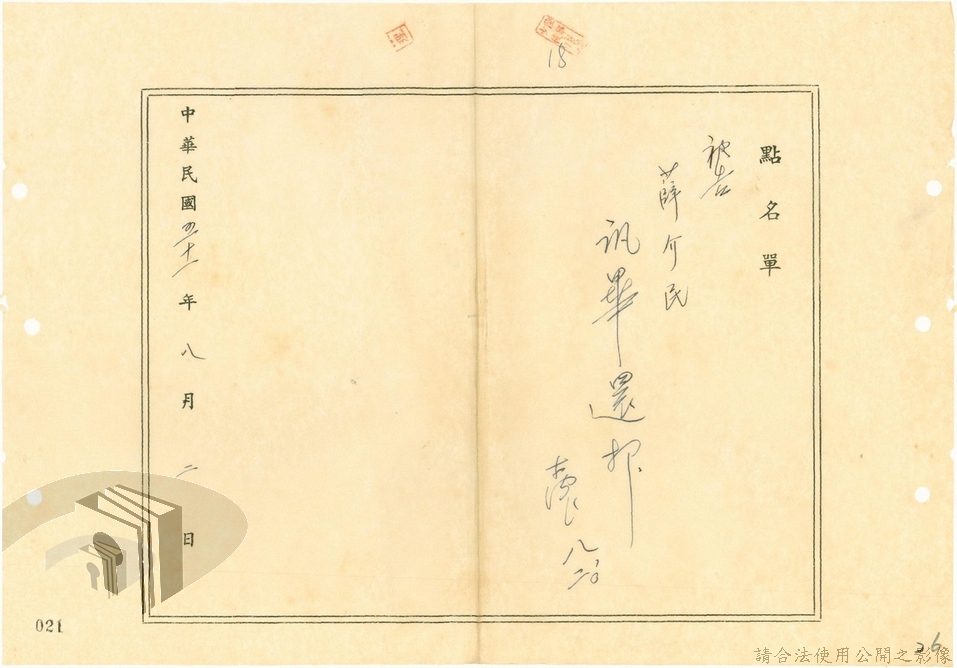 18
點名單
被告
薛介民
訊畢還押
八、二、
中華民國五十一年八月二日
021
26
請合法使用公開之影像